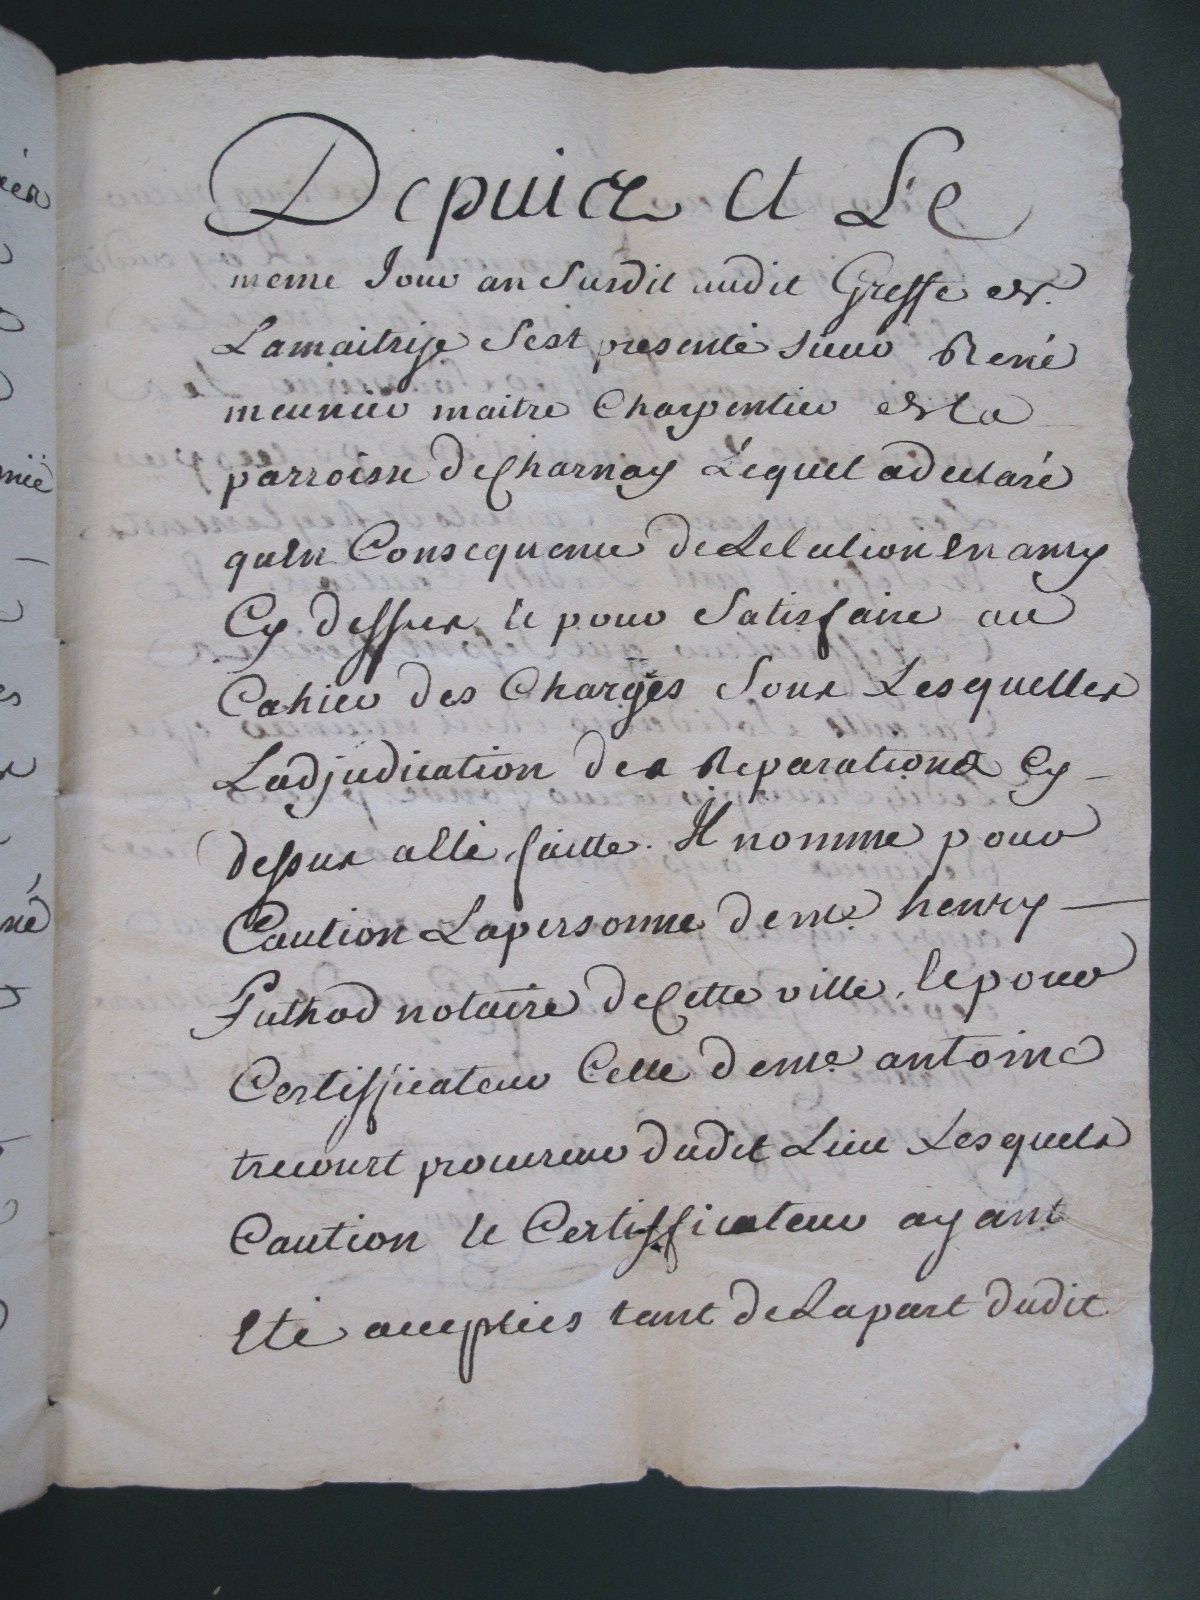 Depuis et Le
meme Jour an Susdit audit Greffe de
Lamaitrise Sest presenté Sieur René
meunier maitre Charpentier de la
parroisse de Charnay Lequel a declaré
quen Consequence de Lelection en amy
Cy dessus et pour Satisfaire au
Cahier des Charges Sous Lesquelles
Ladjudication des Reparations Cy
dessus a Eté faitte. Il nomme pour
Caution La personne de me. henry
Puthod notaire de Cette ville, et pour
Certifficateur Celle de me. antoine
trecourt procureur dudit Lieu Lesquels
Caution et Certifficateur ayant
Eté acceptées tant de La part dudit